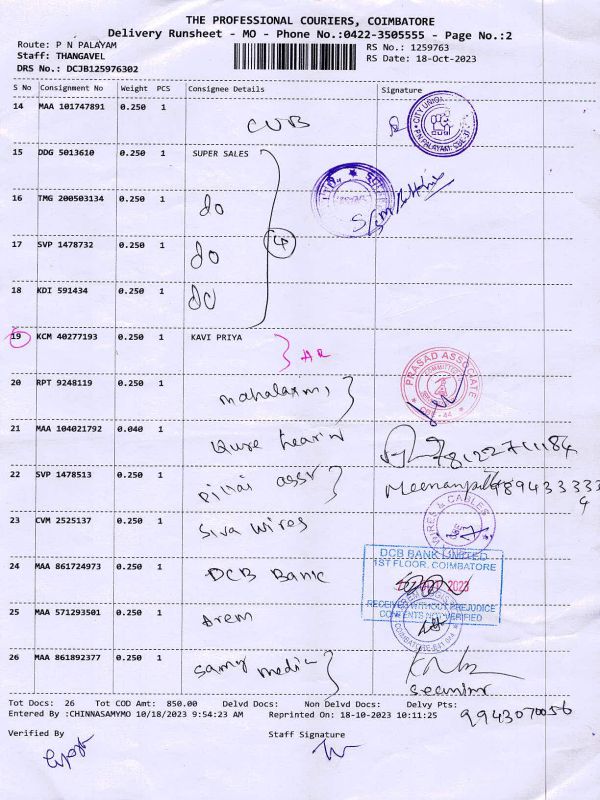 THE PROFESSIONAL COURIERS, COIMBATORE
Delivery Runsheet - MO - Phone No.:0422-3505555 - Page No.:2
Route: P N PALAYAM
Staff: THANGAVEL
DRS No.: DCJB125976302
RS No.: 1259763
RS Date: 18-Oct-2023
S No Consignment No Weight PCS Consignee Details Signature
14 MAA 101747891 0.250 1 CUB
CITY UNION
P.N.PALAYAM
15 DDG 5013610 0.250 1 SUPER SALES
16 TMG 200503134 0.250 1 do
17 SVP 1478732 0.250 1 do
4
18 KDI 591434 0.250 1 do
19 KCM 40277193 0.250 1 KAVI PRIYA AR
20 RPT 9248119 0.250 1 mahalaxmi
PRASAD ASSOCIATE
CBE - 44
21 MAA 104021792 0.040 1
22 SVP 1478513 0.250 1 pillai assr
23 CVM 2525137 0.250 1 Siva wires
WIRES & CABLES
24 MAA 861724973 0.250 1 DCB Bank
DCB BANK LIMITED
1ST FLOOR, COIMBATORE
2023
RECEIVED WITHOUT PREJUDICE
CONTENTS NOT VERIFIED
25 MAA 571293501 0.250 1 Arem
26 MAA 861892377 0.250 1 samy media
Tot Docs: 26 Tot COD Amt: 850.00 Delvd Docs: Non Delvd Docs: Delvy Pts:
Entered By :CHINNASAMYMO 10/18/2023 9:54:23 AM Reprinted On: 18-10-2023 10:11:25
9943070056
Verified By Staff Signature